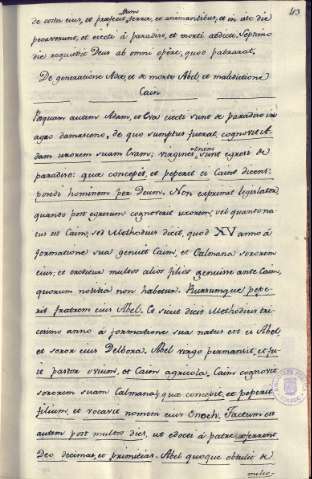 43
de costa eius, et praefecit terrae, et animantibus, et in ate die
peccaverunt, et eiecti à paradiso, et morti addicti. Septimo
die requievit Deus ab omni opere, quod patrarat.
De generatione Adae, et de morte Abel, et maledictione
Cain
Postquam autem Adam, et Eva eiecti sunt de paradiso in
agro damasceno, de quo sumptus fuerat, cognovit A-
dam uxorem suam Evam; virgines enim sunt egressi de
paradiso: quae concepit, et peperit ei Cain dicens:
possedi hominem per Deum. Non exprimit legislator
quando post egressum cognoverit uxorem, vel quando na-
tus est Cain, sed Methodius dicit, quod XV anno à
formatione sua genuit Cain, et Calmana sororem
eius; et multos alios filios genuisse ante Cain,
quorum notitia non habetur. Rursumque pepe-
rit fratrem eius Abel. Et sicut dicit Methodius tri-
cesimo anno à formatione sua natus est ei Abel,
et soror eius Delbora. Abel virgo permansit, et fu-
it pastor ovium, et Cain agricola. Cain cognovit
sororem suam Calmana; quae concepit, et peperit
filium, et vocavit nomen eius Enoch. Factum est
autem post multos dies, ut edocti à patre offerrent
Deo decimas, et primitias. Abel quoque obtulit de